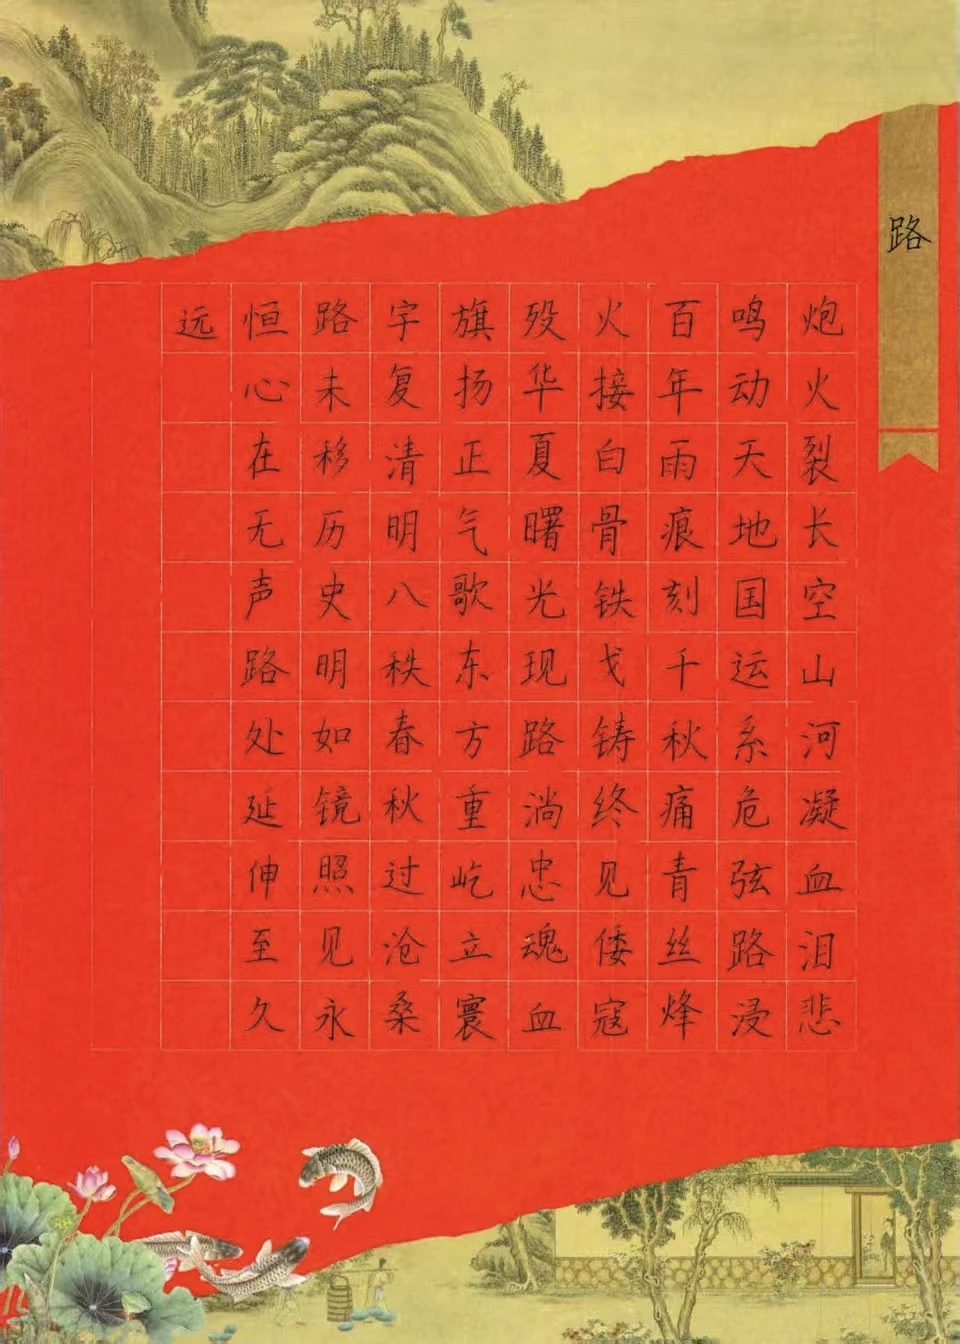 路
炮火裂长空山河凝血泪悲
鸣动天地国运系危弦路浸
百年雨痕刻千秋痛青丝烽
火接白骨铁戈铸终见倭寇
殁华夏曙光现路淌忠魂血
旗扬正气歌东方重屹立寰
宇复清明八秩春秋过沧桑
路未移历史明如镜照见永
恒心在无声路处延伸至久
远